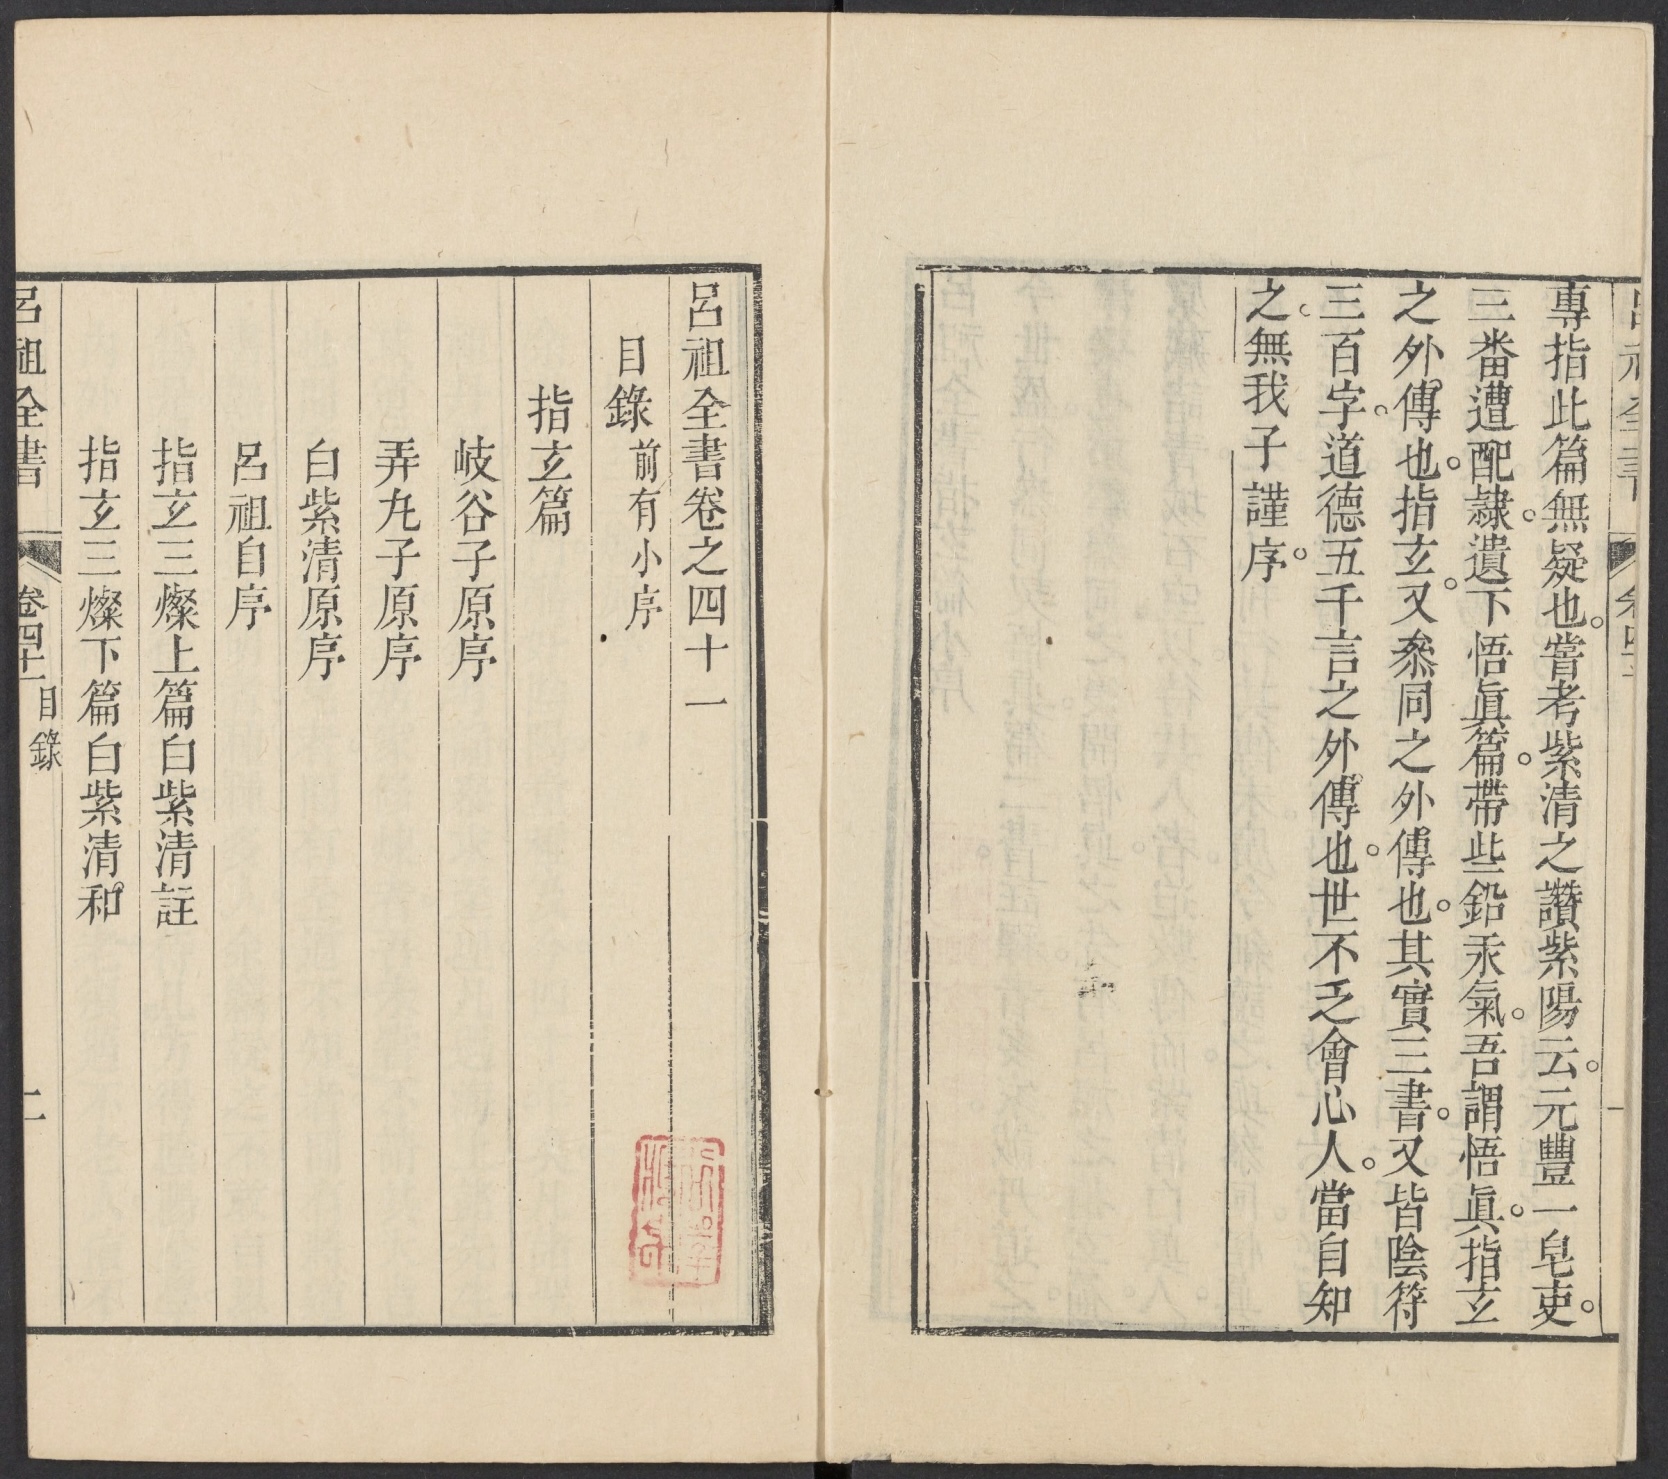 專指此篇無疑也。嘗考紫清之讚紫陽云。元豐一皂吏。
三番遭配隷。遺下悟眞篇。帶些鉛汞氣。吾謂悟眞。指玄
之外傳也。指玄。又叅同之外傳也。其實三書。又皆陰符
三百字。道德五千言之外傳也。世不乏會心人。當自知
之。無我子謹序。
呂祖全書卷之四十一
目錄 前有小序
指玄篇
岐谷子原序
弄丸子原序
白紫清原序
呂祖自序
指玄三燦上篇白紫清註
指玄三燦下篇白紫清和
呂祖全書 卷四十一 目錄 二